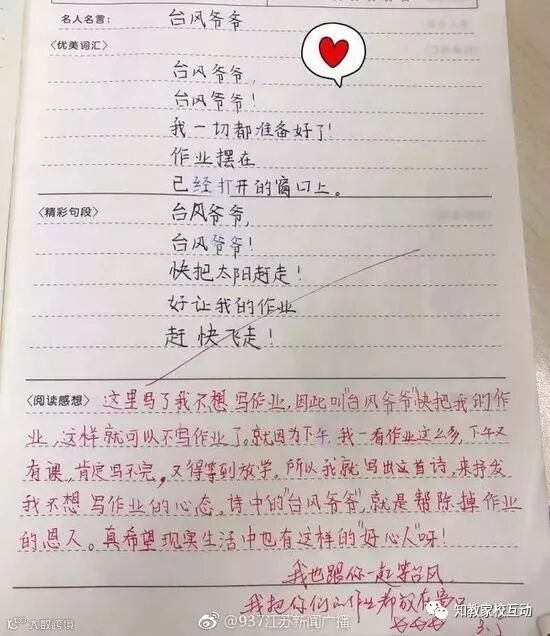 名人名言：
台风爷爷
〈优美词汇〉
台风爷爷，
台风爷爷！
我一切都准备好了！
作业摆在
已经打开的窗口上。
〈精彩句段〉
台风爷爷，
台风爷爷！
快把太阳赶走！
好让我的作业
赶快飞走！
〈阅读感想〉
这里写了我不想写作业，因此叫“台风爷爷”快把我的作
业，这样就可以不写作业了。就因为下午，我一看作业这么多，下午又
有课，肯定写不完，又得等到放学。所以我就写出这首诗，来抒发
我不想写作业的心态。诗中的“台风爷爷”，就是帮除掉作业
的恩人。真希望现实生活中也有这样的“好心人”呀！
我也跟你一起等台风
我把你们的作业都放在窗口
@937江苏新闻广播
知教家校互动
大数跨境